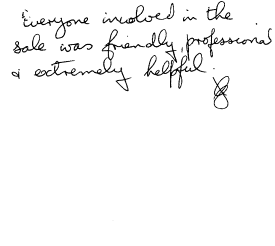 Everyone involved in the
sale was friendly, professional
& extremely helpful.